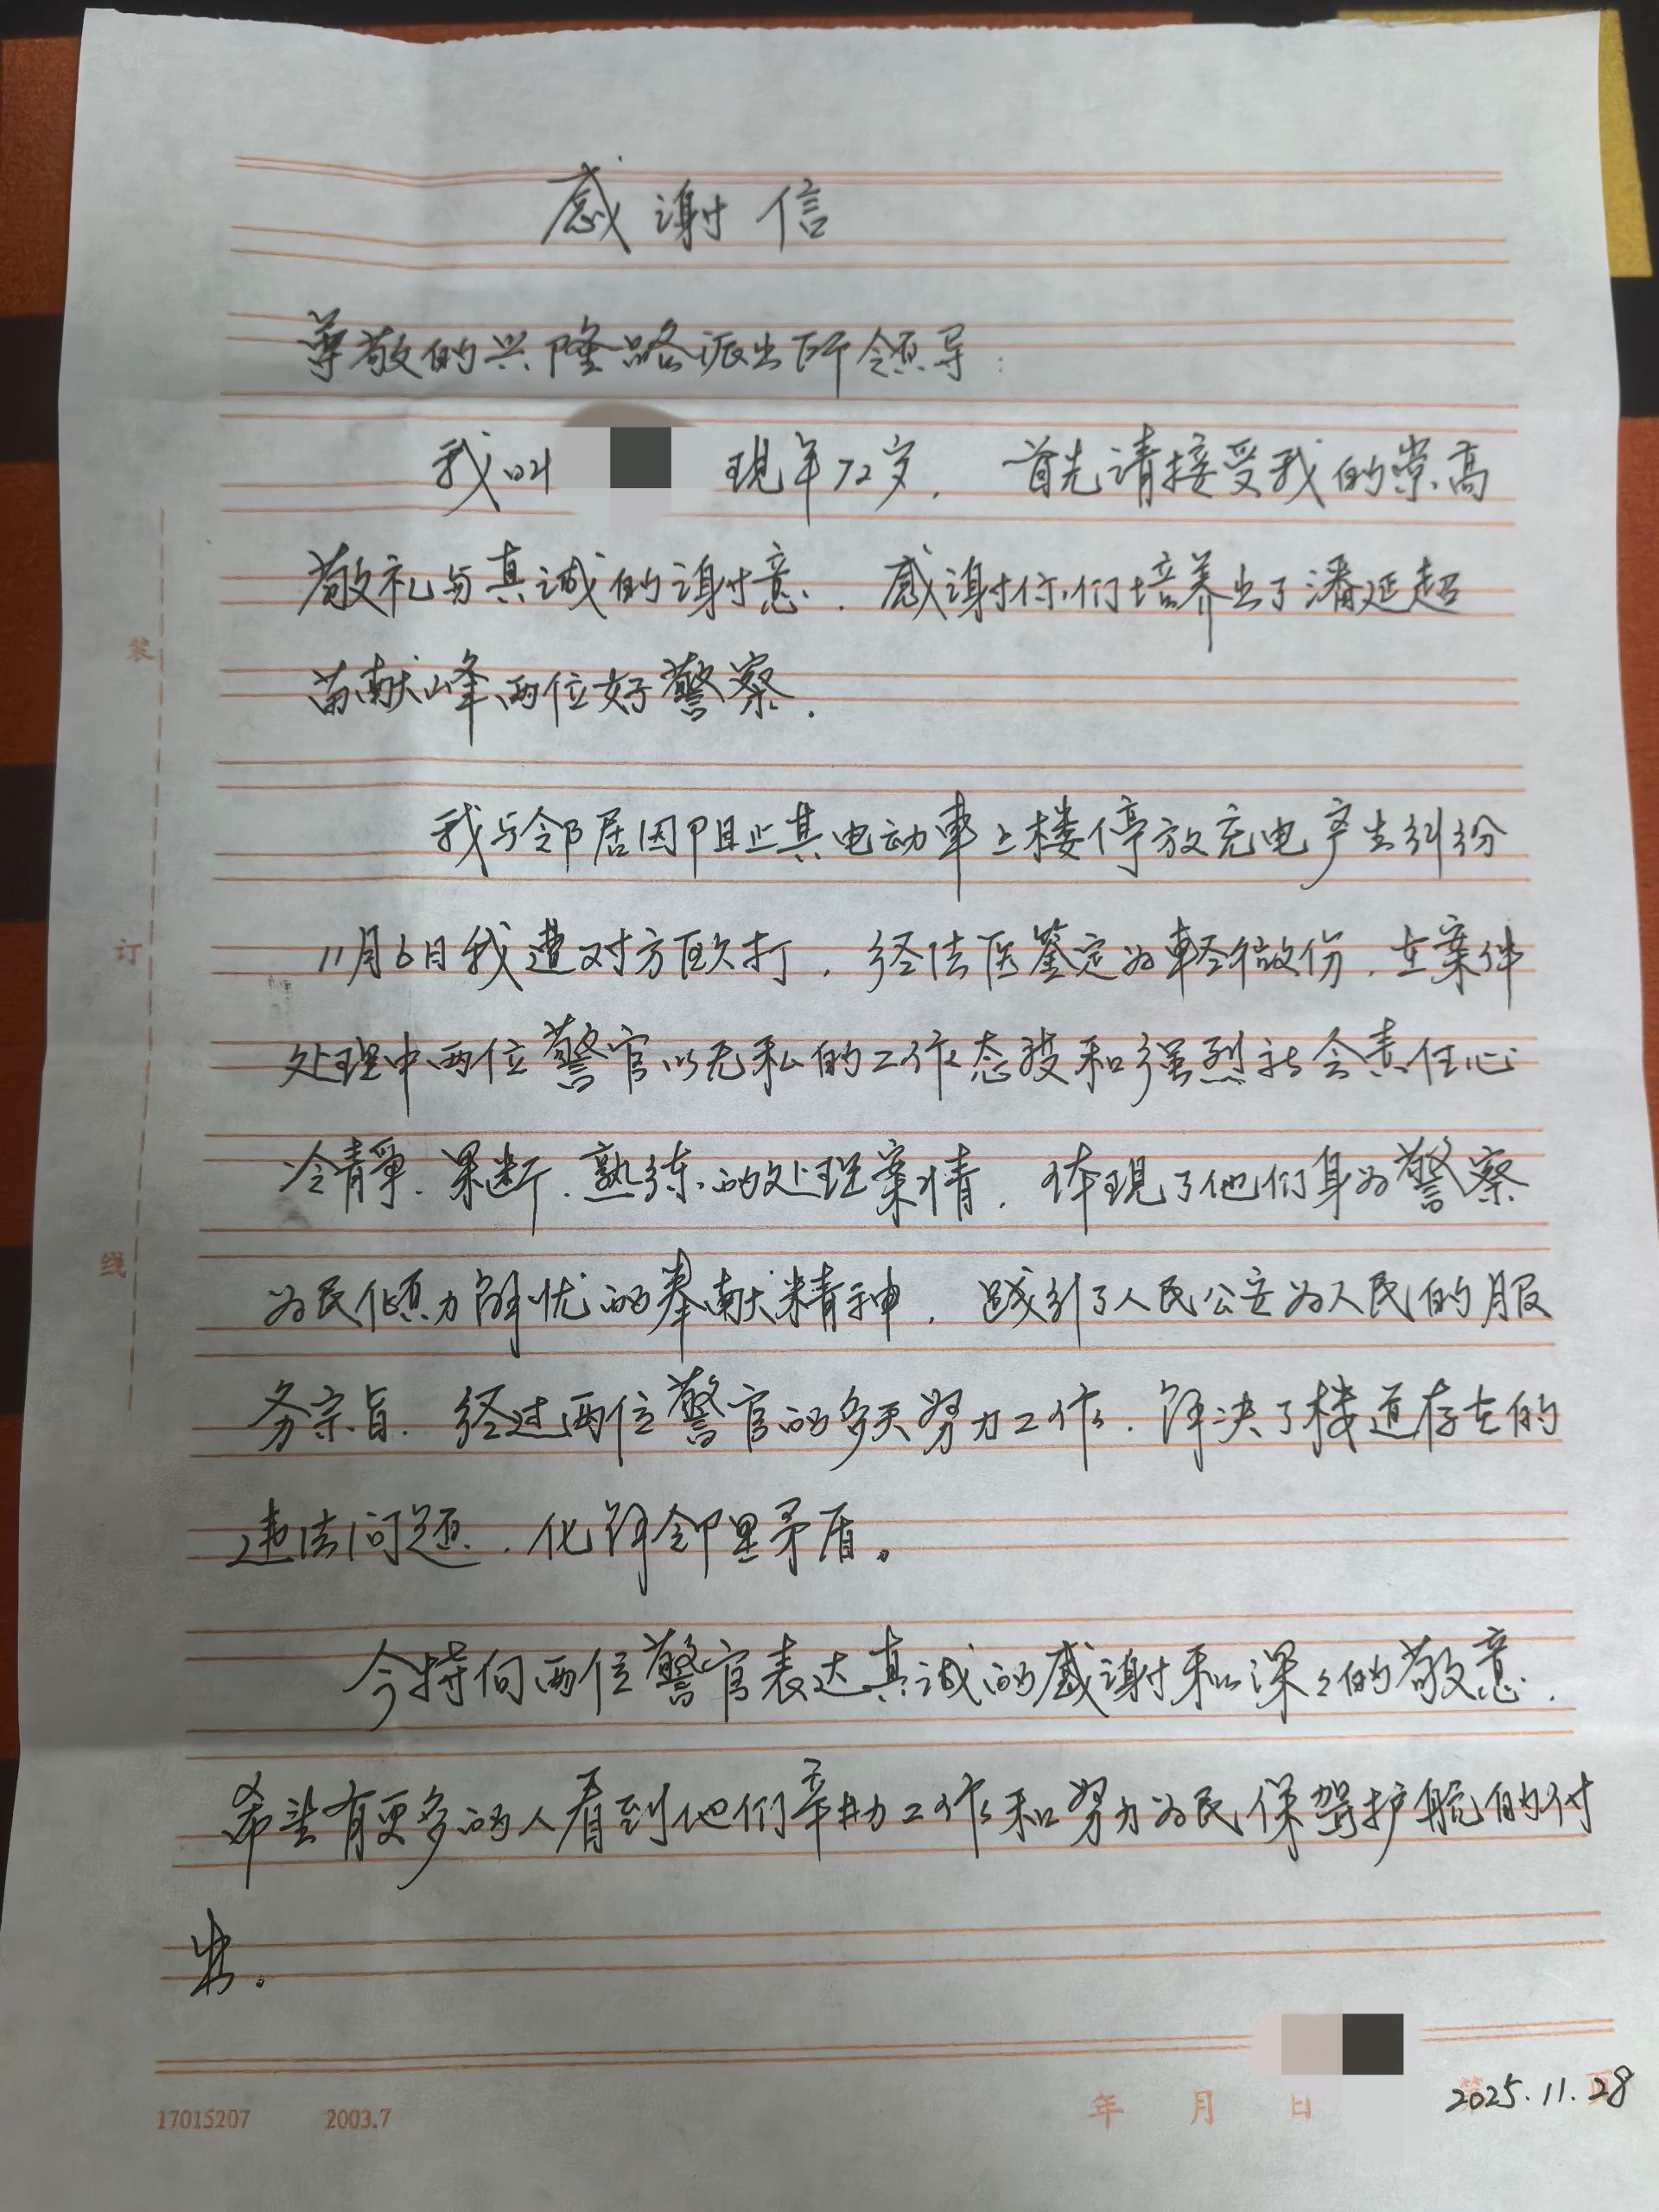 感谢信
尊敬的兴隆路派出所领导：
我叫 现年72岁. 首先请接受我的崇高
敬礼与真诚的谢意. 感谢你们培养出了潘延超
苗献峰两位好警察.
我与邻居因阻止其电动車上楼停放充电产生纠纷
11月6日我遭对方殴打. 经法医鉴定为軽微伤. 在案件
处理中两位警官以无私的工作态度和强烈社会责任心
冷靜. 果断. 熟练的处理案情. 体現了他们身为警察
为民倾力解忧的奉献精神. 践行了人民公安为人民的服
务宗旨. 经过两位警官的多天努力工作. 解决了楼道存在的
违法问题. 化解邻里矛盾。
今特向两位警官表达真诚的感谢和深々的敬意.
希望有更多的人看到他们辛勤工作和努力为民保驾护航的付
出。
装
订
线
17015207 2003.7
年 月 日 第 页
2025.11.28